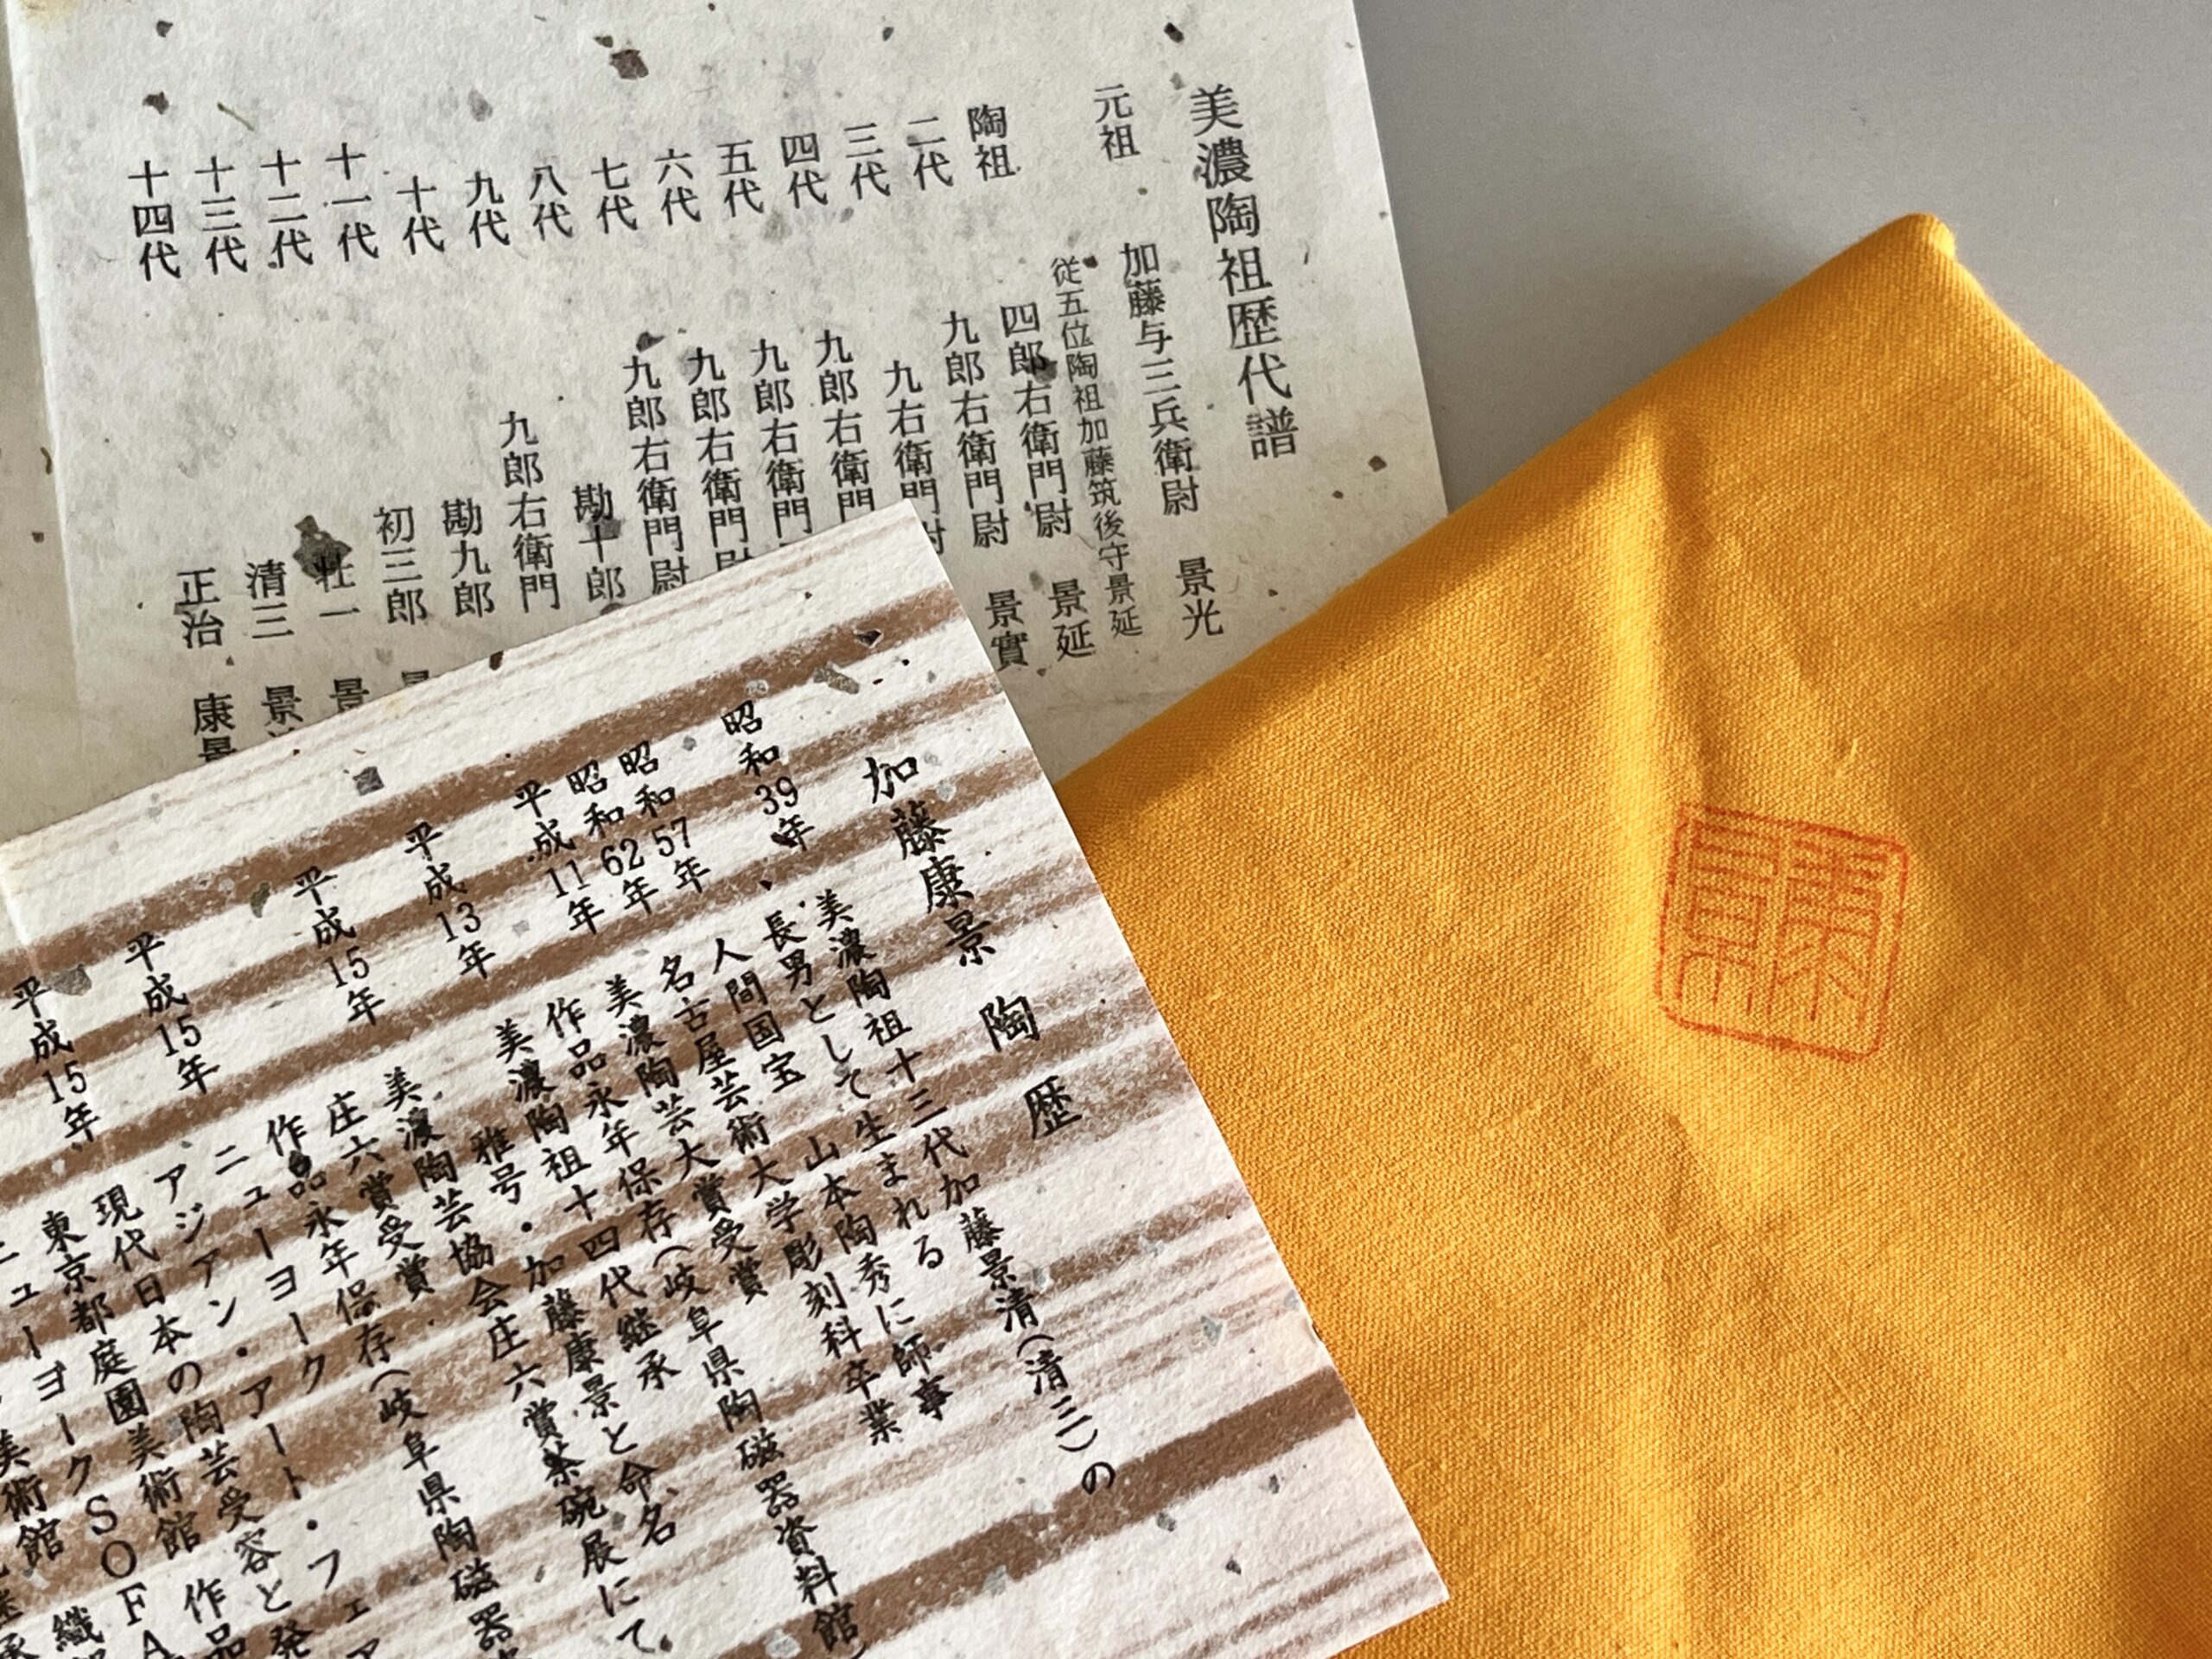 美濃陶祖歴代譜
元祖 加藤与三兵衛尉 景光
従五位陶祖加藤筑後守景延
陶祖 四郎右衛門尉 景延
二代 九郎右衛門尉 景實
三代 九右衛門尉
四代 九郎右衛門
五代 九郎右衛門
六代 九郎右衛門尉
七代 九郎右衛門尉
八代 勘十郎
九代 九郎右衛門
十代 勘九郎
十一代 初三郎 景
十二代 壮一 景
十三代 清三 景
十四代 正治 康景
加藤康景 陶歴
昭和39年、美濃陶祖十三代加藤景清(清三)の
長男として生まれる
昭和57年 人間国宝 山本陶秀に師事
昭和62年 名古屋芸術大学彫刻科卒業
平成11年 美濃陶芸大賞受賞
作品永年保存(岐阜県陶磁器資料館)
平成13年 美濃陶祖十四代継承
雅号・加藤康景と命名
平成15年 美濃陶芸協会庄六賞茶碗展にて
庄六賞受賞
作品永年保存(岐阜県陶磁器
平成15年 ニューヨーク
アジアン・アート・フェア
平成15年 現代日本の陶芸受容と発
東京都庭園美術館 作品
ニューヨークSOFA
美術館 織
康景